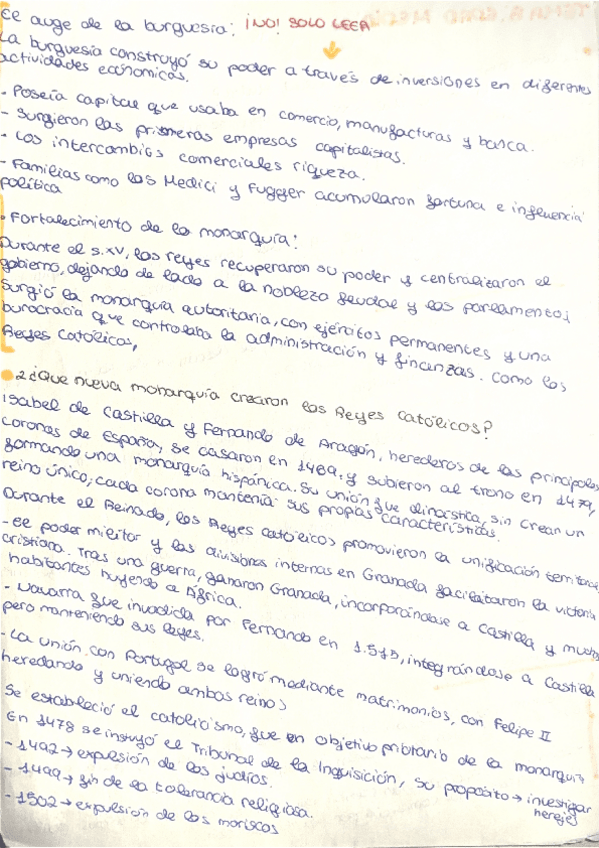 El auge de la burguesía: ¡NO! SOLO LEER
La burguesía construyó su poder a través de inversiones en diferentes
actividades económicas.
- Poseía capital que usaba en comercio, manufacturas y banca.
- Surgieron las primeras empresas capitalistas.
- Los intercambios comerciales riqueza.
- Familias como los Medici y Fugger acumularon fortuna e influencia
política
• Fortalecimiento de la monarquía:
Durante el s.XV, los reyes recuperaron su poder y centralizaron el
gobierno, dejando de lado a la nobleza feudal y los parlamentos;
surgió la monarquía autoritaria, con ejércitos permanentes y una
burocracia que controlaba la administración y finanzas. como los
Reyes Católicos,
• 2¿Que nueva monarquía crearon los Reyes Católicos?
Isabel de Castilla y Fernando de Aragón, herederos de las principales
coronas de España, se casaron en 1469, y subieron al trono en 1479,
formando una monarquía hispánica. Su unión fue dinárstica, sin crean un
reino único; cada corona mantenía sus propas características.
Durante el Reinado, los Reyes Católicos promovieron la unificación territorial
- El poder militar y las divisiones internas en Granada facilitaron la victoria
cristiana. Tras una guerra, ganaron Granada, incorporándose a Castilla y muchos
habitantes huyendo a África.
- Navarra fue invadida por Fernando en 1.515, integrándose a Castilla
pero manteniendo sus leyes.
- La unión con Portugal se logró mediante matrimonios, con Felipe II
heredando y uniendo ambos reinos
Se estableció el catolicismo, fue un objetivo prioritario de la monarquía
En 1478 se instuyó el Tribunal de la Inquisición, su propósito → investigar
herejes
- 1492 → expulsión de los judíos.
- 1499 → fin de la tolerancia religiosa.
- 1502 → expulsión de los moriscos